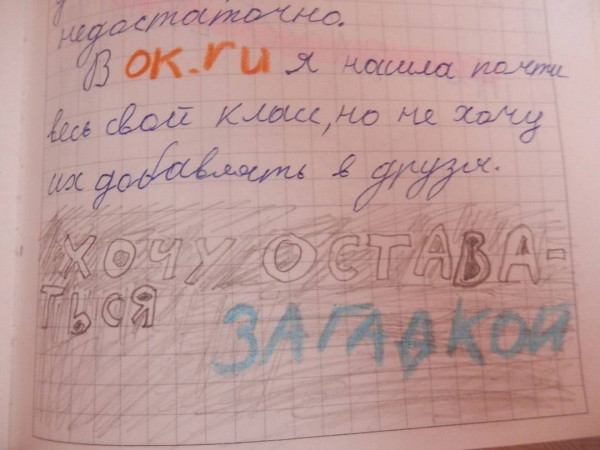 недостаточно.
В ok.ru я нашла почти
весь свой класс, но не хочу
их добавлять в друзья.
ХОЧУ ОСТАВА-
ТЬСЯ ЗАГАДКОЙ